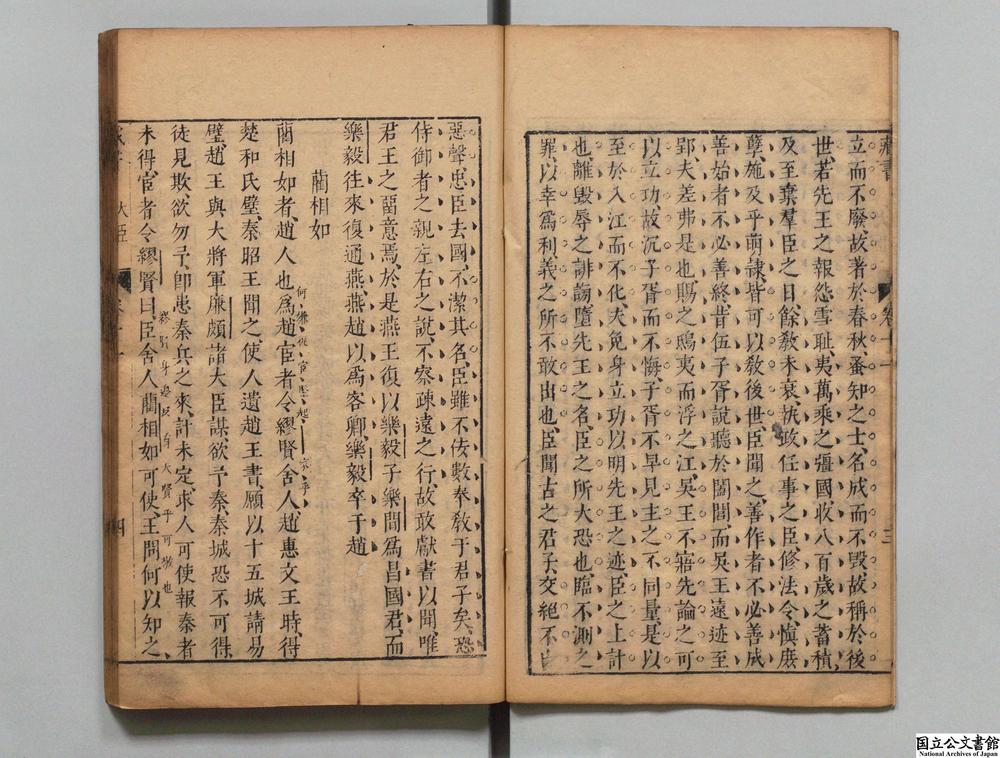 藏書 卷十一 三
立而不廢故著於春秋蚤知之士名成而不毀故稱於後
世若先王之報怨雪耻夷萬乘之彊國收八百歲之蓄積
及至棄羣臣之日餘敎未衰執政任事之臣修法令愼庶
孽施及乎萌隷皆可以敎後世臣聞之善作者不必善成
善始者不必善終昔伍子胥說聽於闔閭而吳王遠迹至
郢夫差弗是也賜之鴟夷而浮之江吳王不寤先論之可
以立功故沉子胥而不悔子胥不早見主之不同量是以
至於入江而不化夫免身立功以明先王之迹臣之上計
也離毀辱之誹謗墮先王之名臣之所大恐也臨不測之
罪以幸爲利義之所不敢出也臣聞古之君子交絕不出
惡聲忠臣去國不潔其名臣雖不佞數奉敎于君子矣恐
侍御者之親左右之說不察疎遠之行故敢獻書以聞唯
君王之畱意焉於是燕王復以樂毅子樂閒爲昌國君而
樂毅往來復通燕燕趙以爲客卿樂毅卒于趙
藺相如
藺相如者趙人也爲趙宦者令繆賢舍人趙惠文王時得
楚和氏璧秦昭王聞之使人遺趙王書願以十五城請易
璧趙王與大將軍廉頗諸大臣謀欲予秦秦城恐不可得
徒見欺欲勿予卽患秦兵之來計未定求人可使報秦者
未得宦者令繆賢曰臣舍人藺相如可使王問何以知之
大臣 四